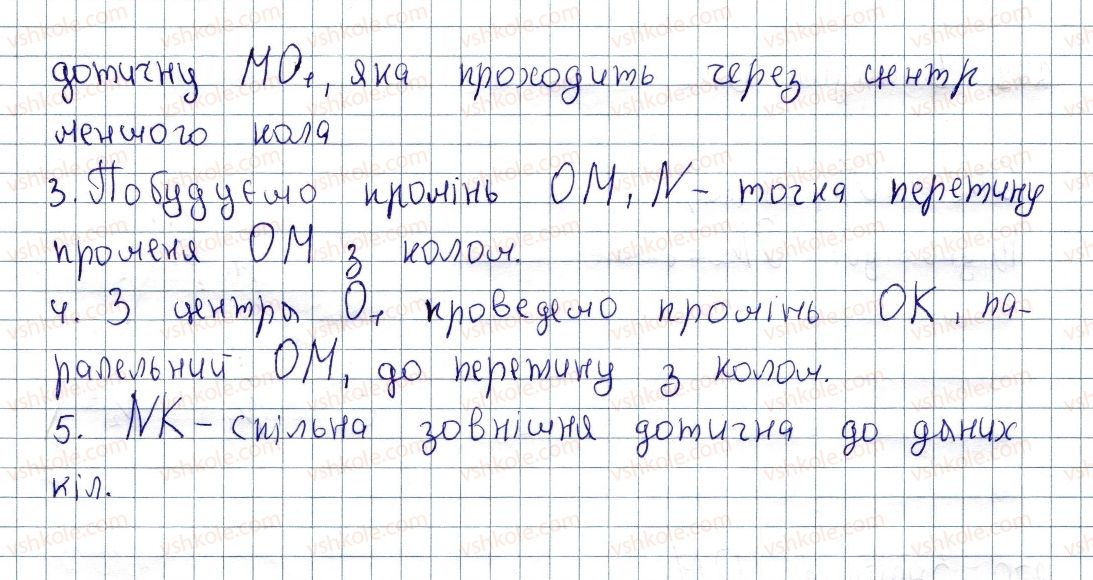 дотичну МО₁, яка проходить через центр
меншого кола
3. Побудуємо промінь ОМ, N - точка перетину
променя ОМ з колом.
4. З центры О₁ проведемо промінь ОК, па-
ралельний ОМ, до перетину з колом.
5. NK - спільна зовнішня дотична до даних
кіл.